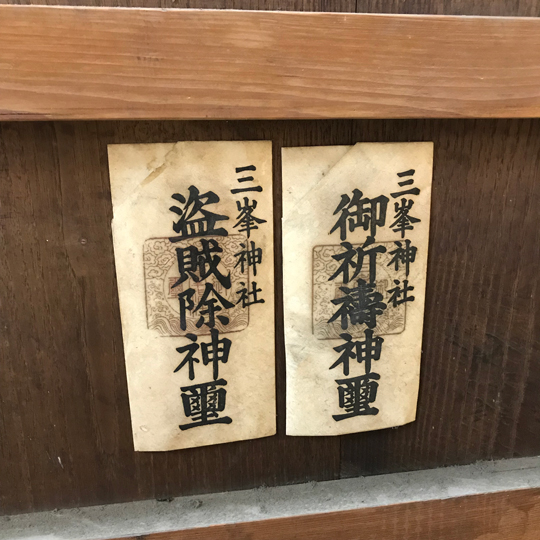 三峯神社
御祈禱神璽
三峯神社
盗賊除神璽